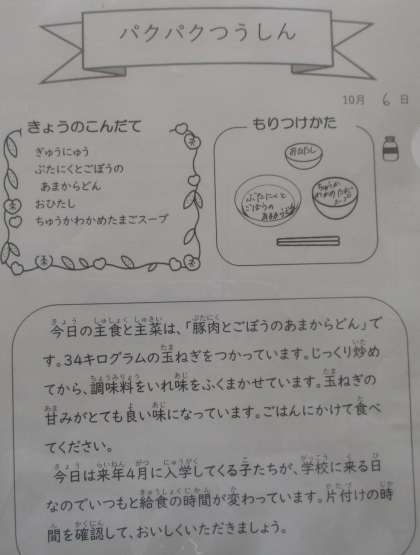 パクパクつうしん
10月 6 日
きょうのこんだて
ぎゅうにゅう
ぶたにくとごぼうの
あまからどん
おひたし
ちゅうかわかめたまごスープ
もりつけかた
おひたし
ぶたにくと
ごぼうの
あまからどん
ちゅうか
わかめたまご
スープ
今日の主食と主菜は、「豚肉とごぼうのあまからどん」で
す。34キログラムの玉ねぎをつかっています。じっくり炒め
てから、調味料をいれ味をふくまかせています。玉ねぎの
甘みがとても良い味になっています。ごはんにかけて食べ
てください。
今日は来年4月に入学してくる子たちが、学校に来る日
なのでいつもと給食の時間が変わっています。片付けの時
間を確認して、おいしくいただきましょう。